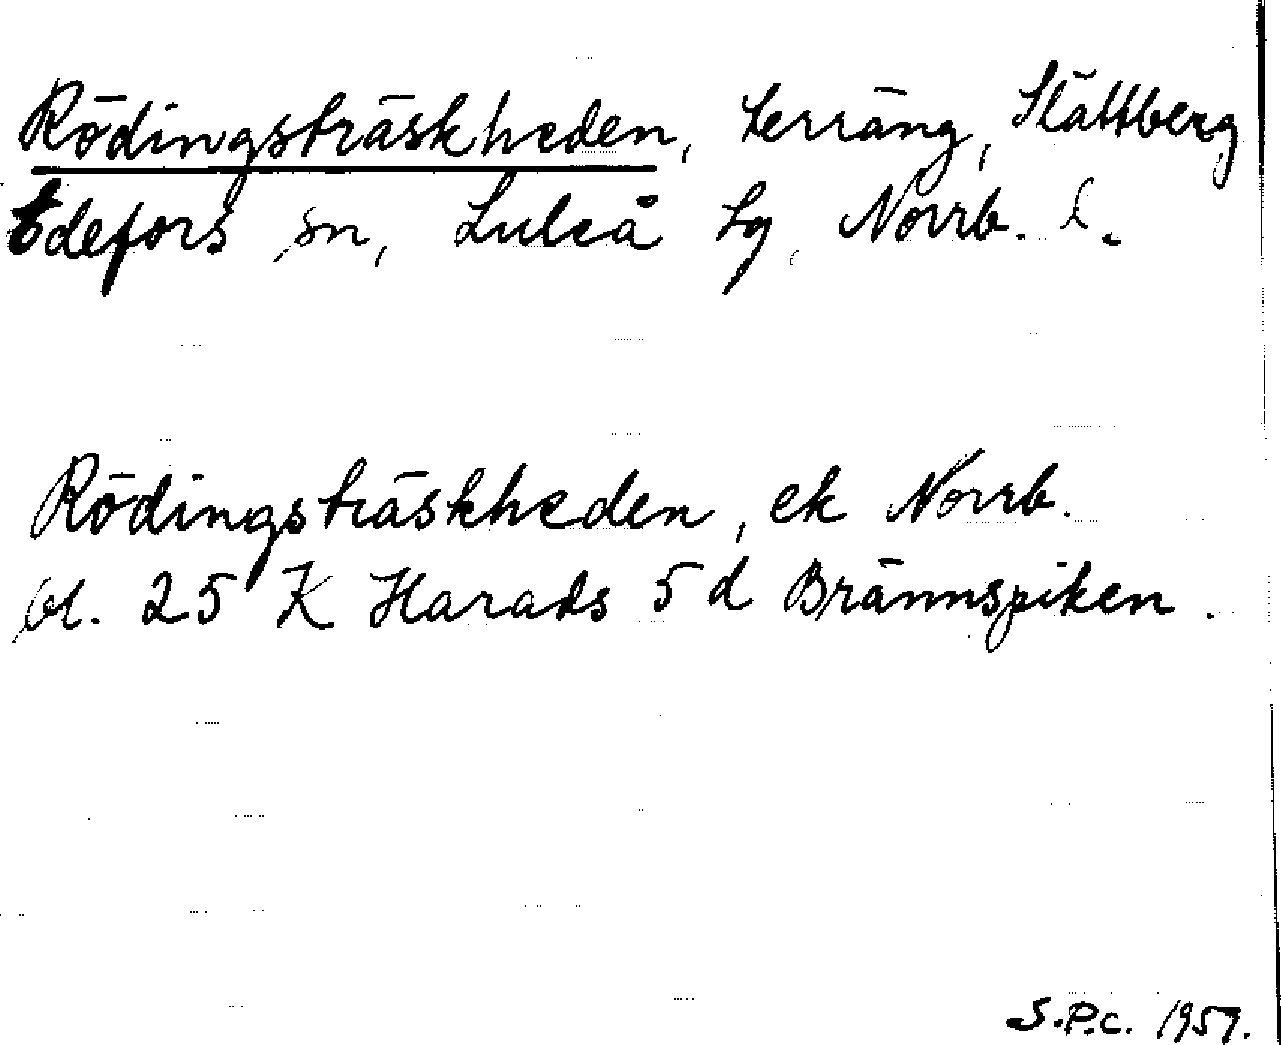 Rödingsträskheden, terräng, Slättberg
Edefors sn, Luleå tg, Norrb. l.
Rödingsträskheden, ek Norrb.
bl. 25 K Harads 5 d Brännspiken.
S.P.c. 1957.